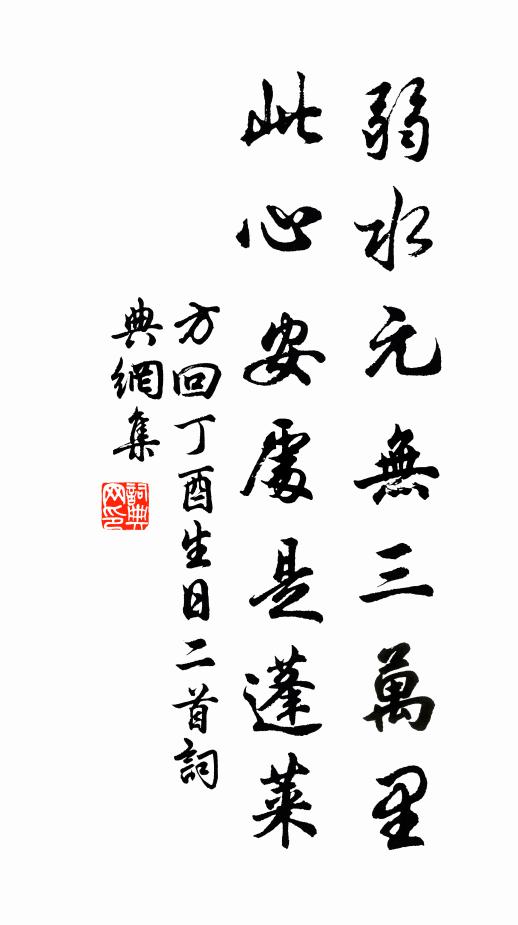 弱水元無三萬里
此心安處是蓬萊
方回丁酉生日二首詞
典網集
詞典网印